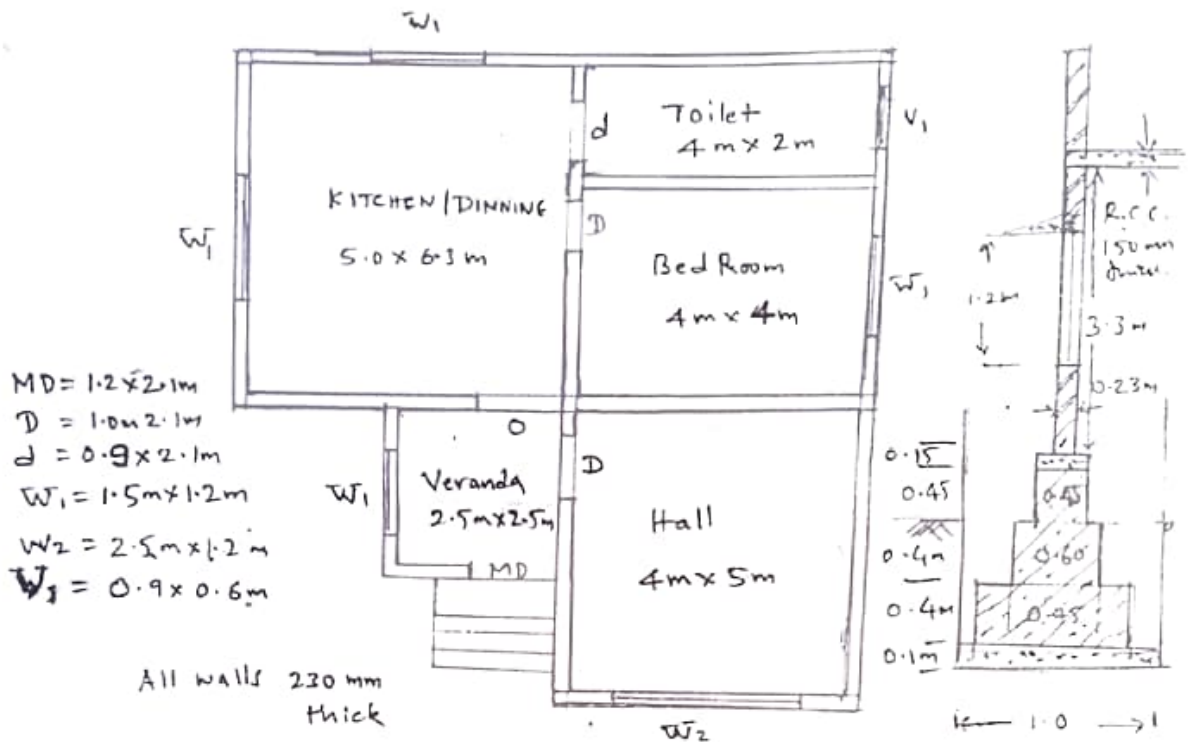 W1
Toilet
4m x 2m
V1
d
KITCHEN/DINNING
5.0 x 6.3 m
W1
D
Bed Room
4m x 4m
W1
R.C.C.
150 mm
1.2m
3.3 m
0.23m
MD = 1.2 x 2.1m
D = 1.0m 2.1m
d = 0.9 x 2.1m
W1 = 1.5m x 1.2m
W2 = 2.5m x 1.2 m
= 0.9 x 0.6m
O
D
W1
Veranda
2.5m x 2.5m
MD
Hall
4m x 5m
0.15
0.45
0.45
0.4m
0.60
0.4m
0.1m
1.0
All walls 230 mm
thick
W2